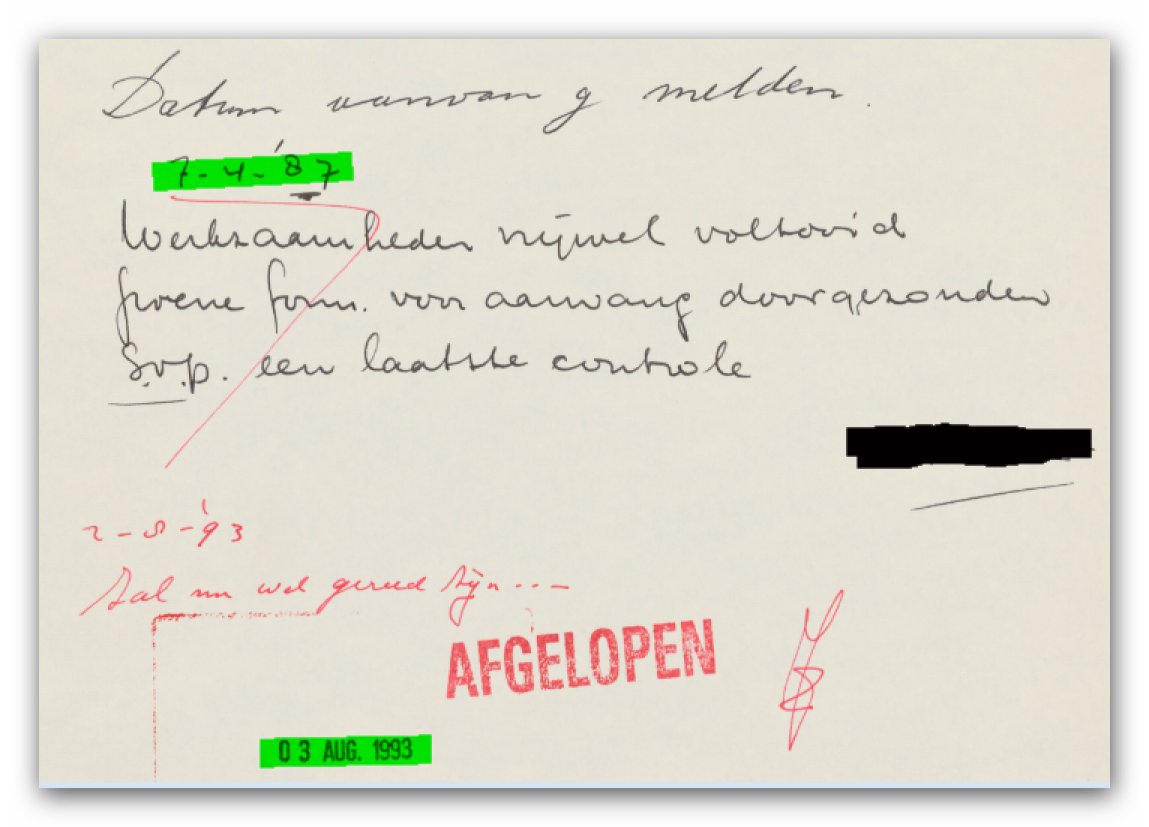 Datum aanvang melden.
7-4-'87
Werkzaamheden nijwel voltooid
groene form. voor aanvang doorgezonden
S.v.p. een laatste controle
2-8-'93
Zal nu wel gereed zijn...-
AFGELOPEN
03 AUG. 1993